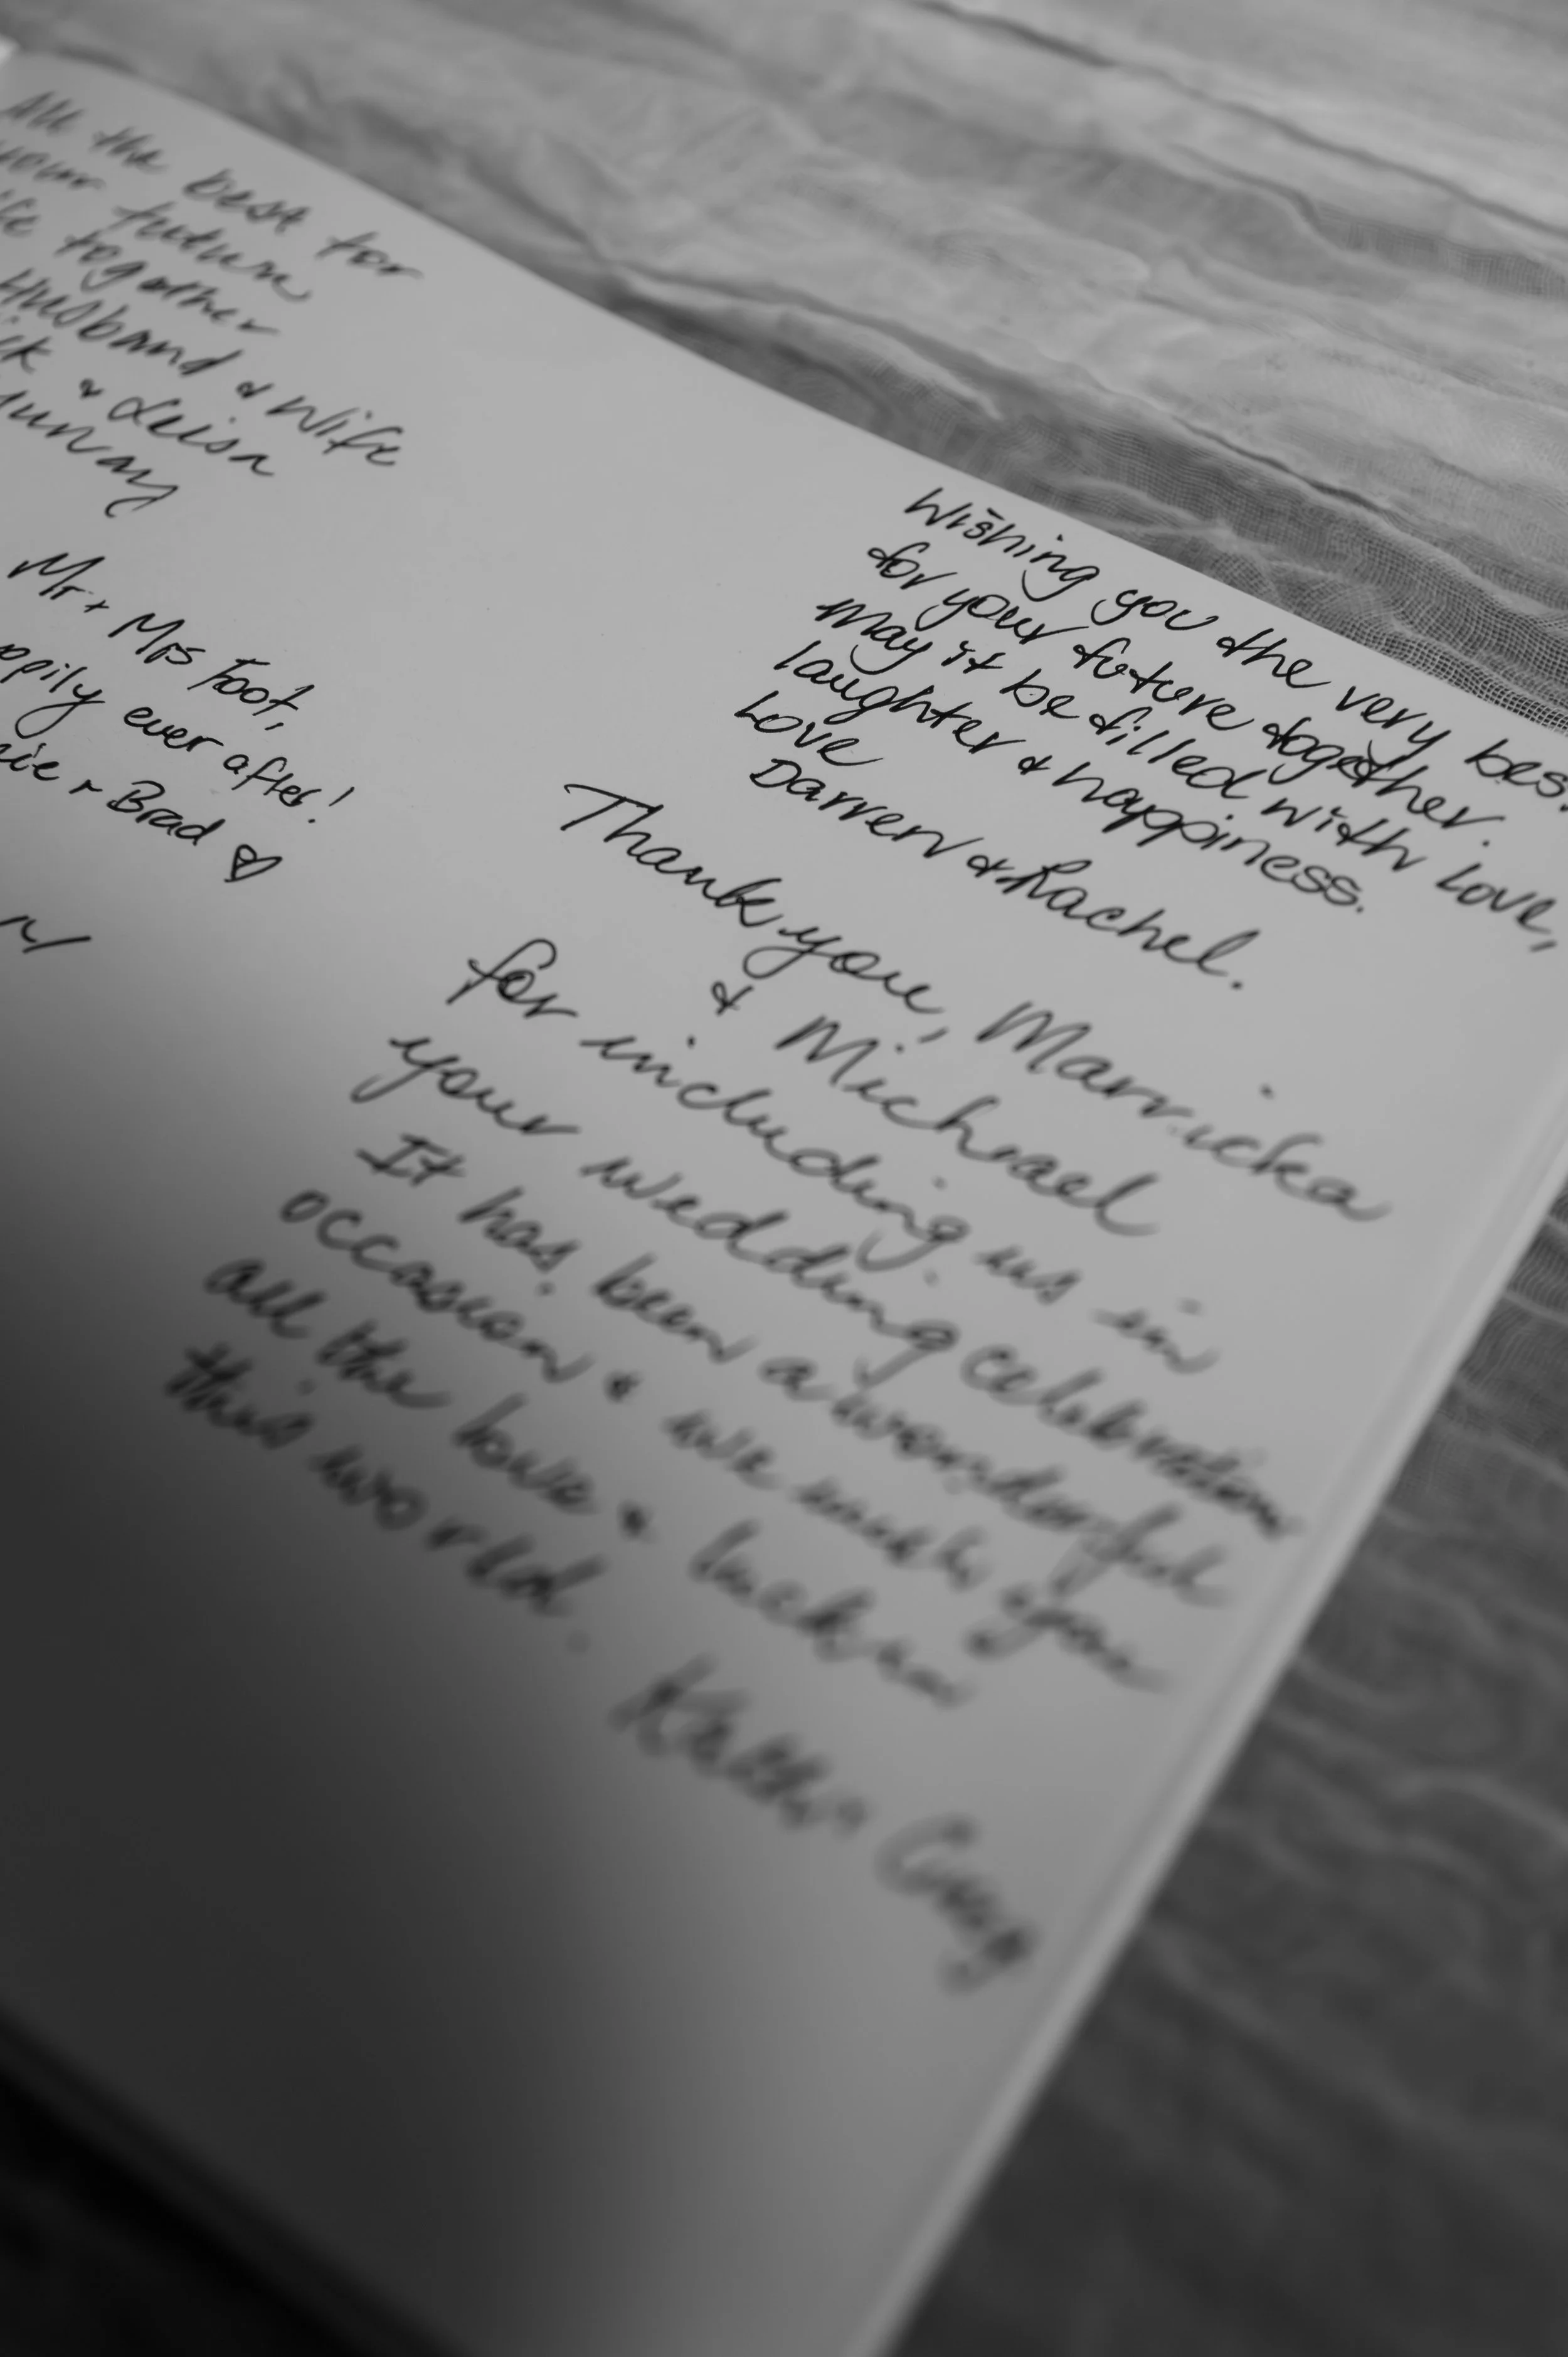 All the best for
your future
together
Husband & Wife
& Leisa
Mr + Mrs Foot,
ever after!
+ Brad
Wishing you the very
for your future together.
May it be filled with love,
laughter & happiness.
Love
Darren & Rachel.
Thank you, Marricka
& Michael
for including us in
your wedding celebration
It has been a wonderful
occasion & we wish you
all the love & luck in
this world.